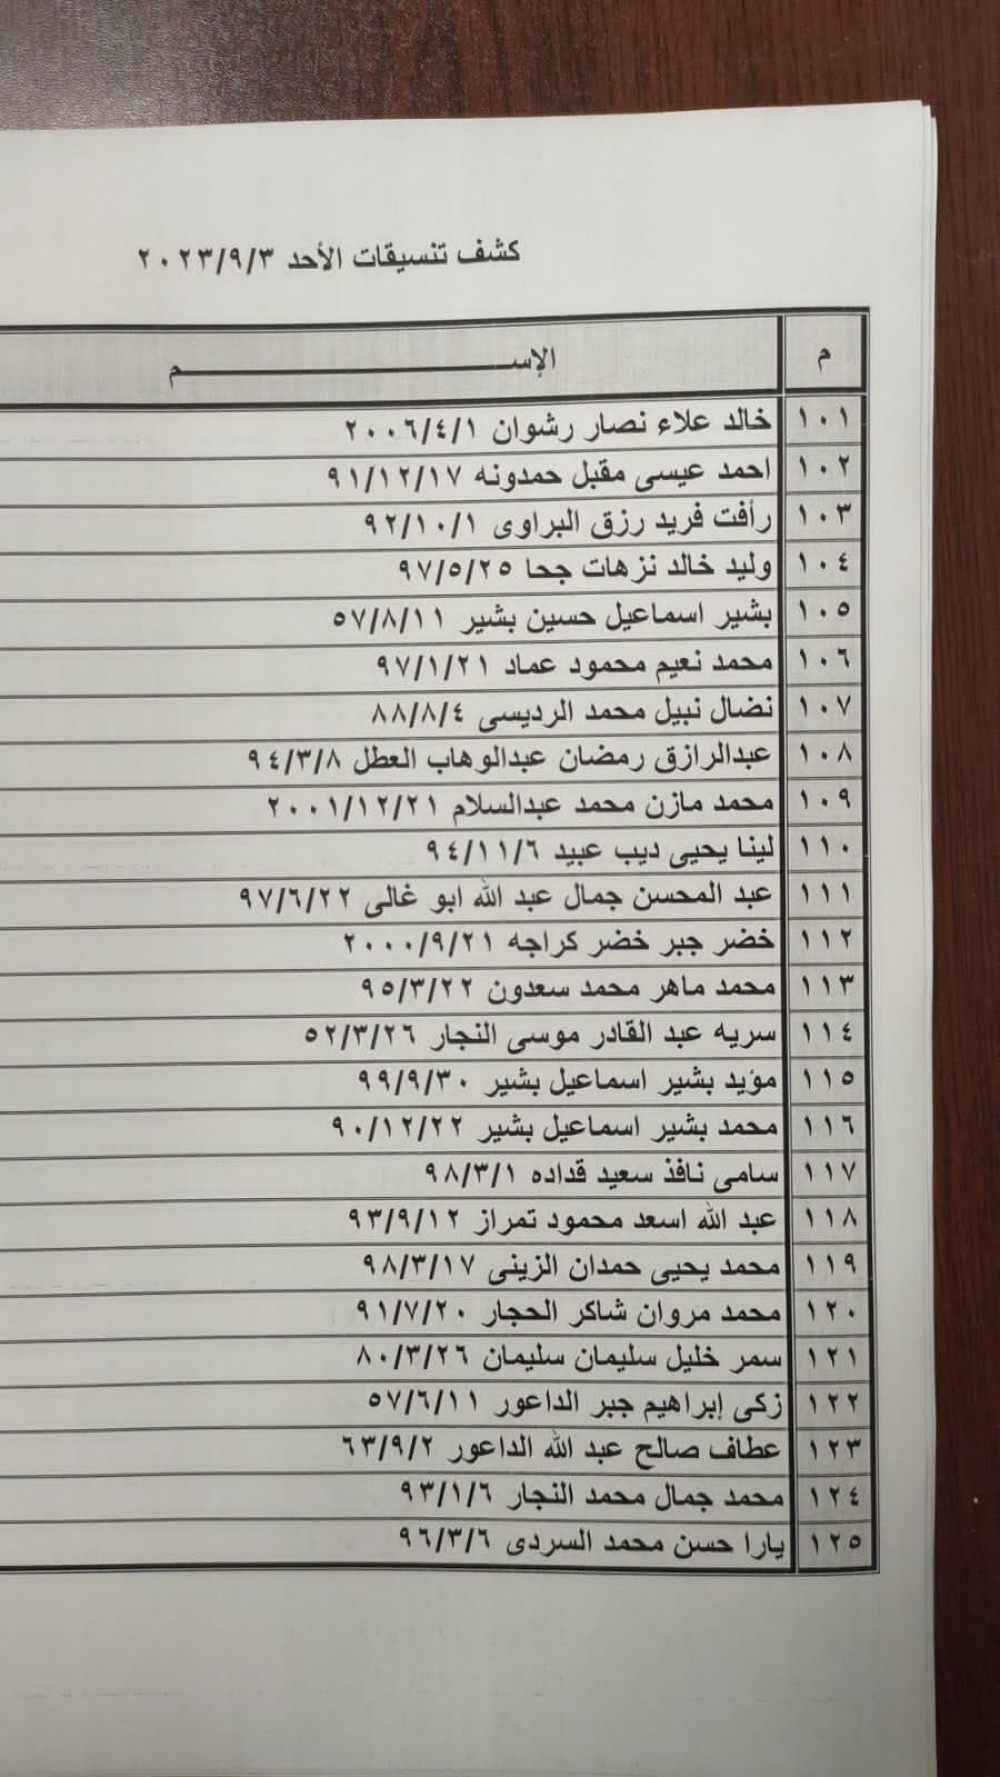 كشف تنسيقات الأحد ٢٠٢٣/٩/٣
م الإســـــــــم
١٠١ خالد علاء نصار رشوان ٢٠٠٦/٤/١
١٠٢ احمد عيسى مقبل حمدونه ٩١/١٢/١٧
١٠٣ رأفت فريد رزق البراوى ٩٢/١٠/١
١٠٤ وليد خالد نزهات جحا ٩٧/٥/٢٥
١٠٥ بشير اسماعيل حسين بشير ٥٧/٨/١١
١٠٦ محمد نعيم محمود عماد ٩٧/١/٢١
١٠٧ نضال نبيل محمد الرديسى ٨٨/٨/٤
١٠٨ عبدالرازق رمضان عبدالوهاب العطل ٩٤/٣/٨
١٠٩ محمد مازن محمد عبدالسلام ٢٠٠١/١٢/٢١
١١٠ لينا يحيى ديب عبيد ٩٤/١١/٦
١١١ عبد المحسن جمال عبد الله ابو غالى ٩٧/٦/٢٢
١١٢ خضر جبر خضر كراجه ٢٠٠٠/٩/٢١
١١٣ محمد ماهر محمد سعدون ٩٥/٣/٢٢
١١٤ سريه عبد القادر موسى النجار ٥٢/٣/٢٦
١١٥ مؤيد بشير اسماعيل بشير ٩٩/٩/٣٠
١١٦ محمد بشير اسماعيل بشير ٩٠/١٢/٢٢
١١٧ سامى نافذ سعيد قداده ٩٨/٣/١
١١٨ عبد الله اسعد محمود تمراز ٩٣/٩/١٢
١١٩ محمد يحيى حمدان الزينى ٩٨/٣/١٧
١٢٠ محمد مروان شاكر الحجار ٩١/٧/٢٠
١٢١ سمر خليل سليمان سليمان ٨٠/٣/٢٦
١٢٢ زكى إبراهيم جبر الداعور ٥٧/٦/١١
١٢٣ عطاف صالح عبد الله الداعور ٦٣/٩/٢
١٢٤ محمد جمال محمد النجار ٩٣/١/٦
١٢٥ يارا حسن محمد السردى ٩٦/٣/٦